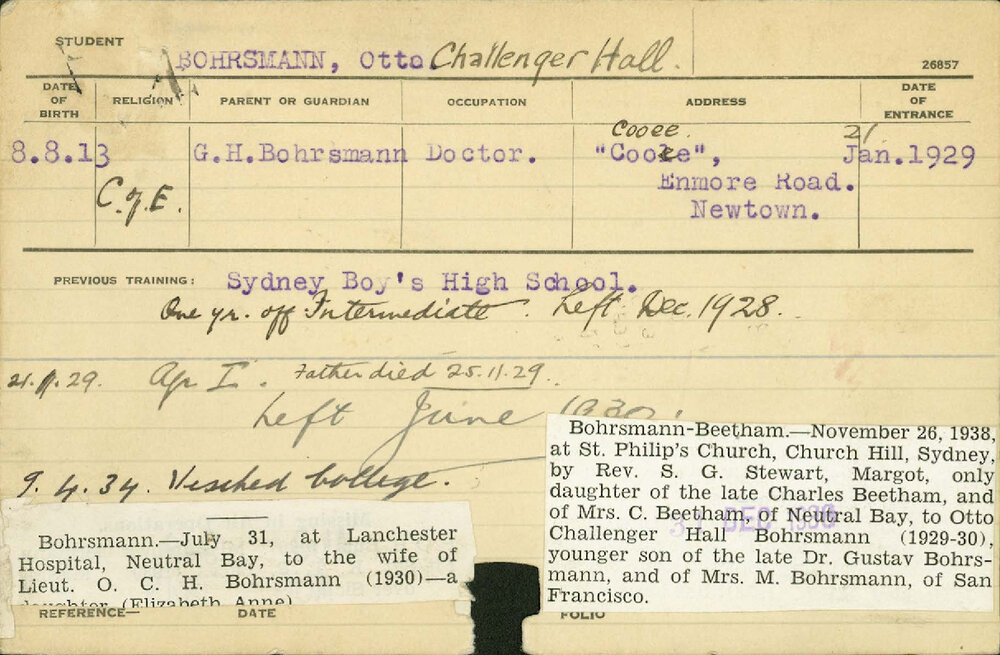 STUDENT
BOHRSMANN, Otto Challenger Hall.
26857
DATE OF BIRTH RELIGION PARENT OR GUARDIAN OCCUPATION ADDRESS DATE OF ENTRANCE
Cooee. 21
8.8.13 G.H.Bohrsmann Doctor. "Cooee", Jan.1929
C of E. Enmore Road.
Newtown.
PREVIOUS TRAINING: Sydney Boy's High School.
One yr. off Intermediate. Left Dec. 1928.
Father died 25.11.29.
Left June 1930.
9.4.34. Visited College.
Bohrsmann.—July 31, at Lanchester
Hospital, Neutral Bay, to the wife of
Lieut. O. C. H. Bohrsmann (1930)—a
daughter (Elizabeth Anne)
Bohrsmann-Beetham.—November 26, 1938,
at St. Philip's Church, Church Hill, Sydney,
by Rev. S. G. Stewart, Margot, only
daughter of the late Charles Beetham, and
of Mrs. C. Beetham, of Neutral Bay, to Otto
Challenger Hall Bohrsmann (1929-30),
younger son of the late Dr. Gustav Bohrs-
mann, and of Mrs. M. Bohrsmann, of San
Francisco.
DEC
REFERENCE— DATE FOLIO